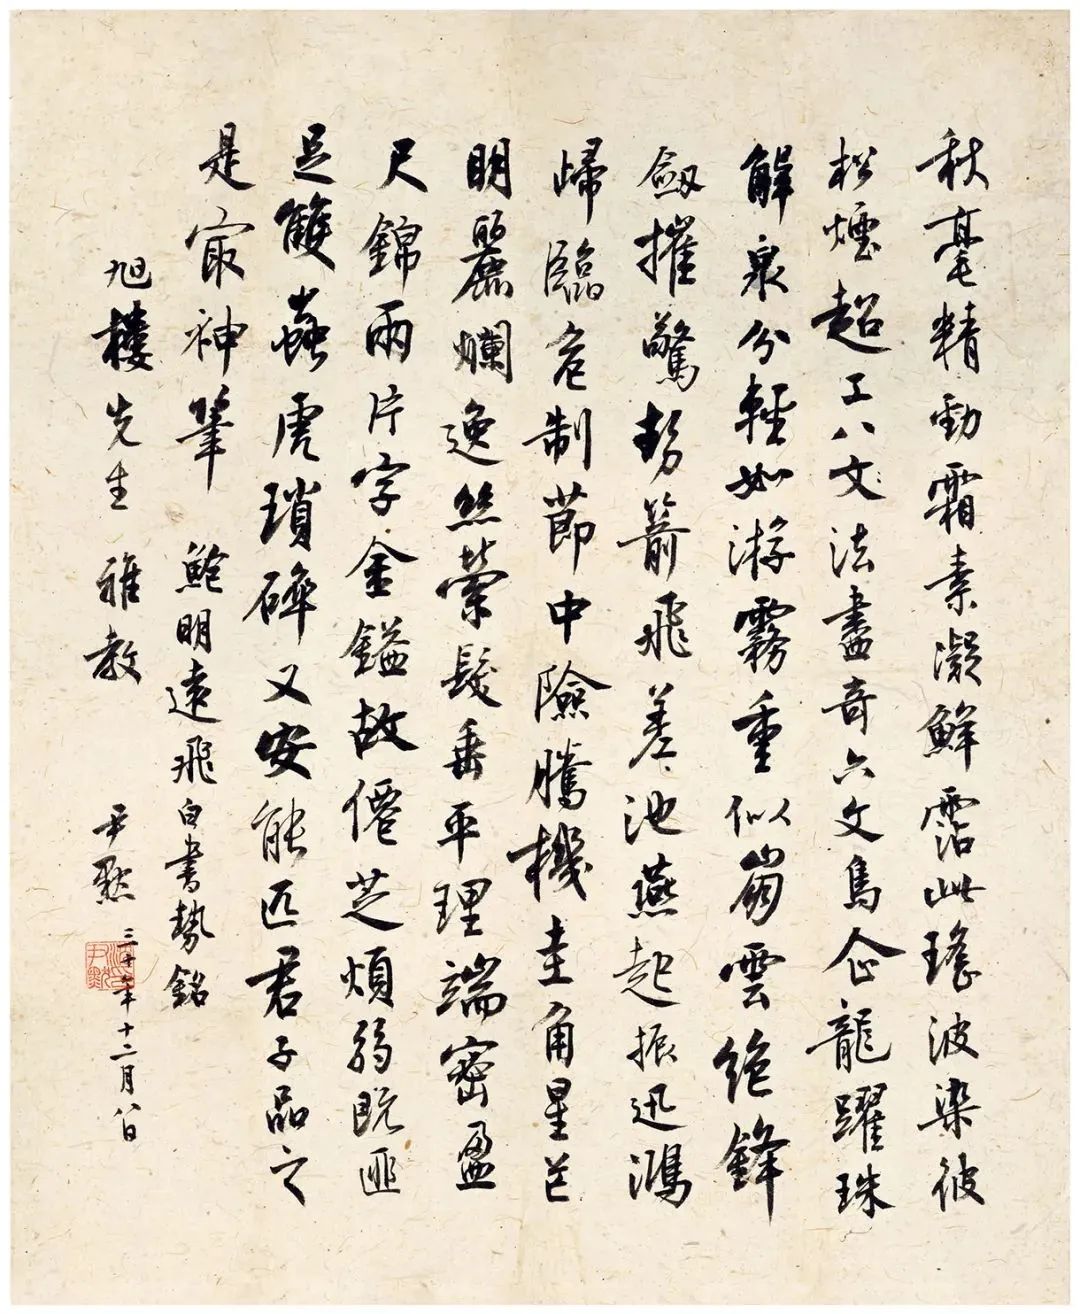 秋毫精勁霜素凝鮮霑此瑤波染彼
松煙超工八文法盡奇六文鳥企龍躍珠
解泉分輕如游霧重似崩雲絶鋒
劔摧驚勢箭飛差池燕起振迅鴻
歸臨危制節中險騰機圭角星芒
明麗爛逸絲縈髮垂平理端密盈
尺錦兩片字金鎰故僊芝煩弱既匪
足雙蟲虎瑣碎又安能匹君子品之
是㝡神筆 鮑明遠飛白書勢銘
旭樓先生 雅教 尹默 三十年十二月八日